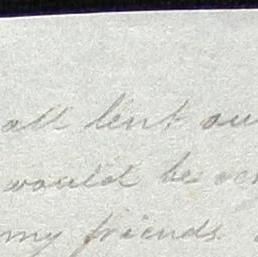 all lent
would be
my friends.